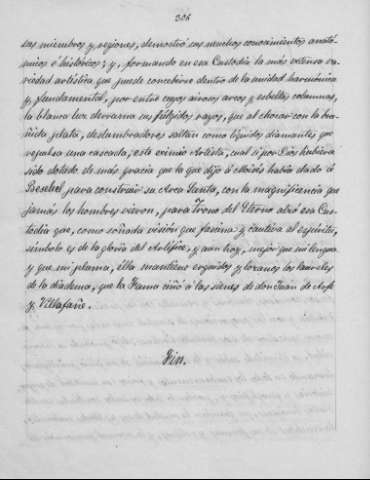 306
sas miembros y regiones, demostró sus muchos conocimientos anató-
micos é históricos; y, formando en esa Custodia la más extensa va-
riedad artística que puede concebirse dentro de la unidad harmónica
y fundamental, por entre cuyos airosos arcos y esbeltas columnas,
la blanca luz derrama sus fúlgidos rayos, que al chocar con la bra-
ñida plata, deslumbradores saltan como líquidos diamantes que
rejalsa una cascada; este eximio Artista, cual si por Dios hubiera
sido dotado de más gracia que la que dijo á Moisés había dado á
Beseleel para construir su Arca Santa, con la magnificencia que
jamás los hombres vieron, para Trono del Eterno alzó esa Cus-
todia que, como soñada visión que fascina y cautiva al espíritu,
símbolo es de la gloria del Artífice, y aun hoy, mejor que mi lengua
y que mi pluma, ella mantiene erguidos y lozanos los laureles
de la diadema, que la Fama ciñó á las sienes de don Juan de Arfe
y Villafañe.
Fin.